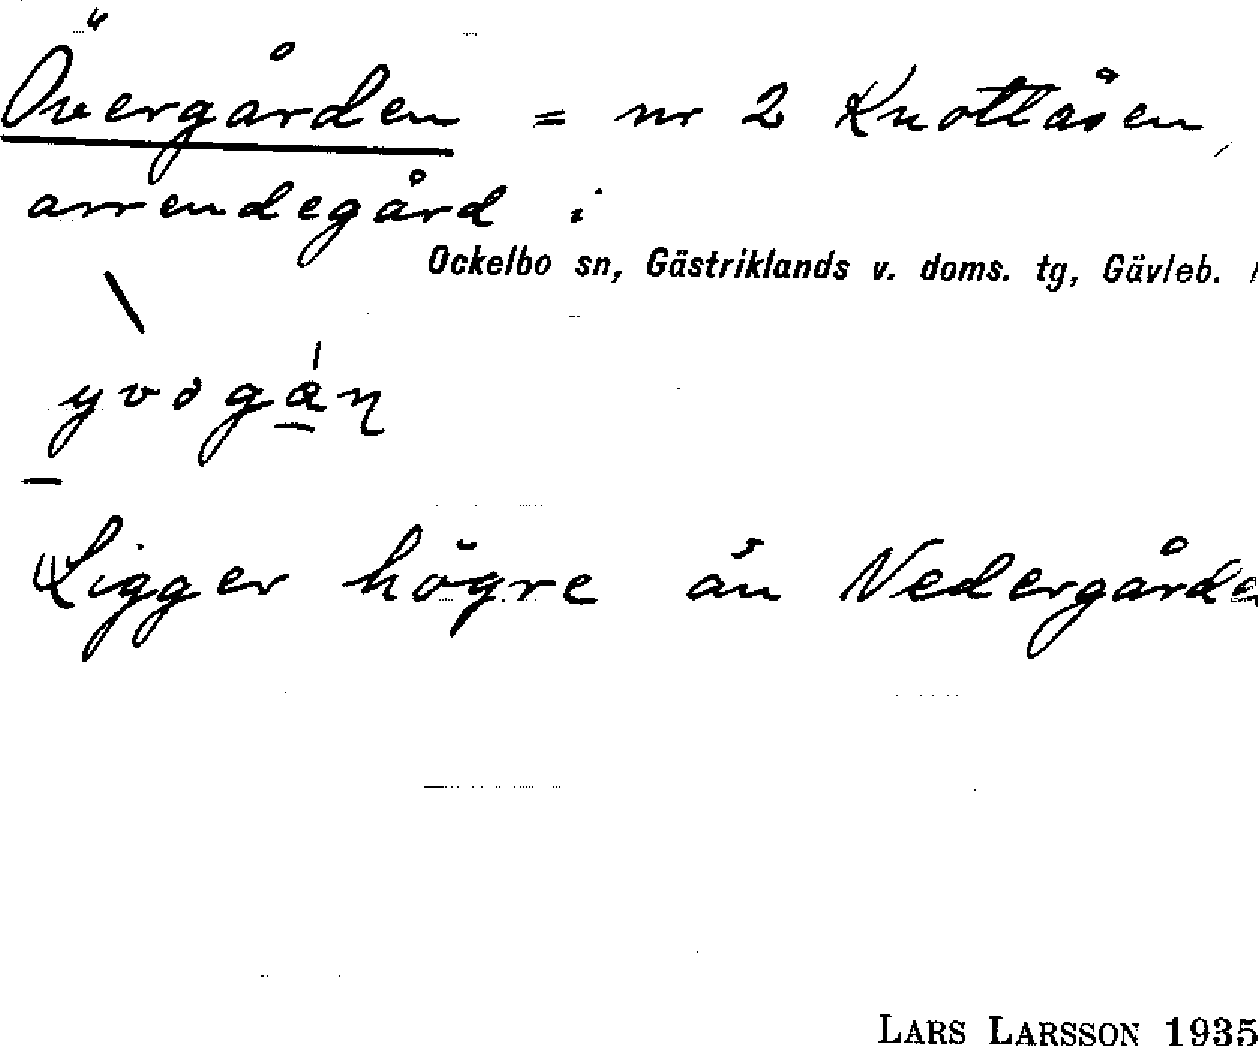 Övergården = nr 2 Knottåsen,
arrendegård i
Ockelbo sn, Gästriklands v. doms. tg, Gävleb.
Ligger högre än Nedergårde
LARS LARSSON 1935